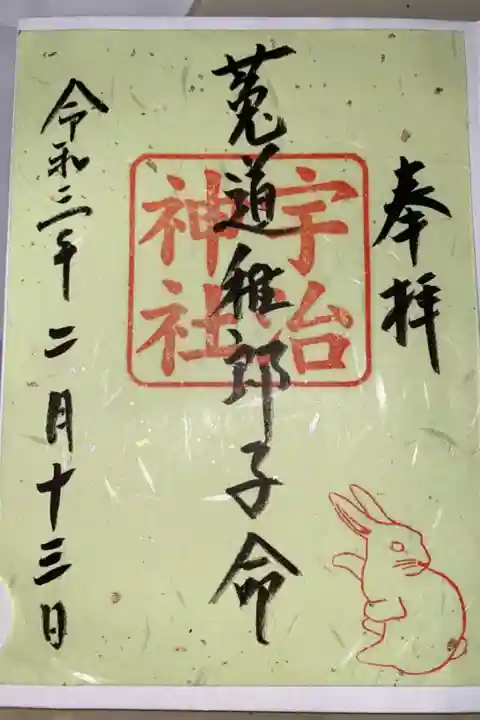 奉拝
宇治
神社
菟道稚郎子命
令和三年二月十三日